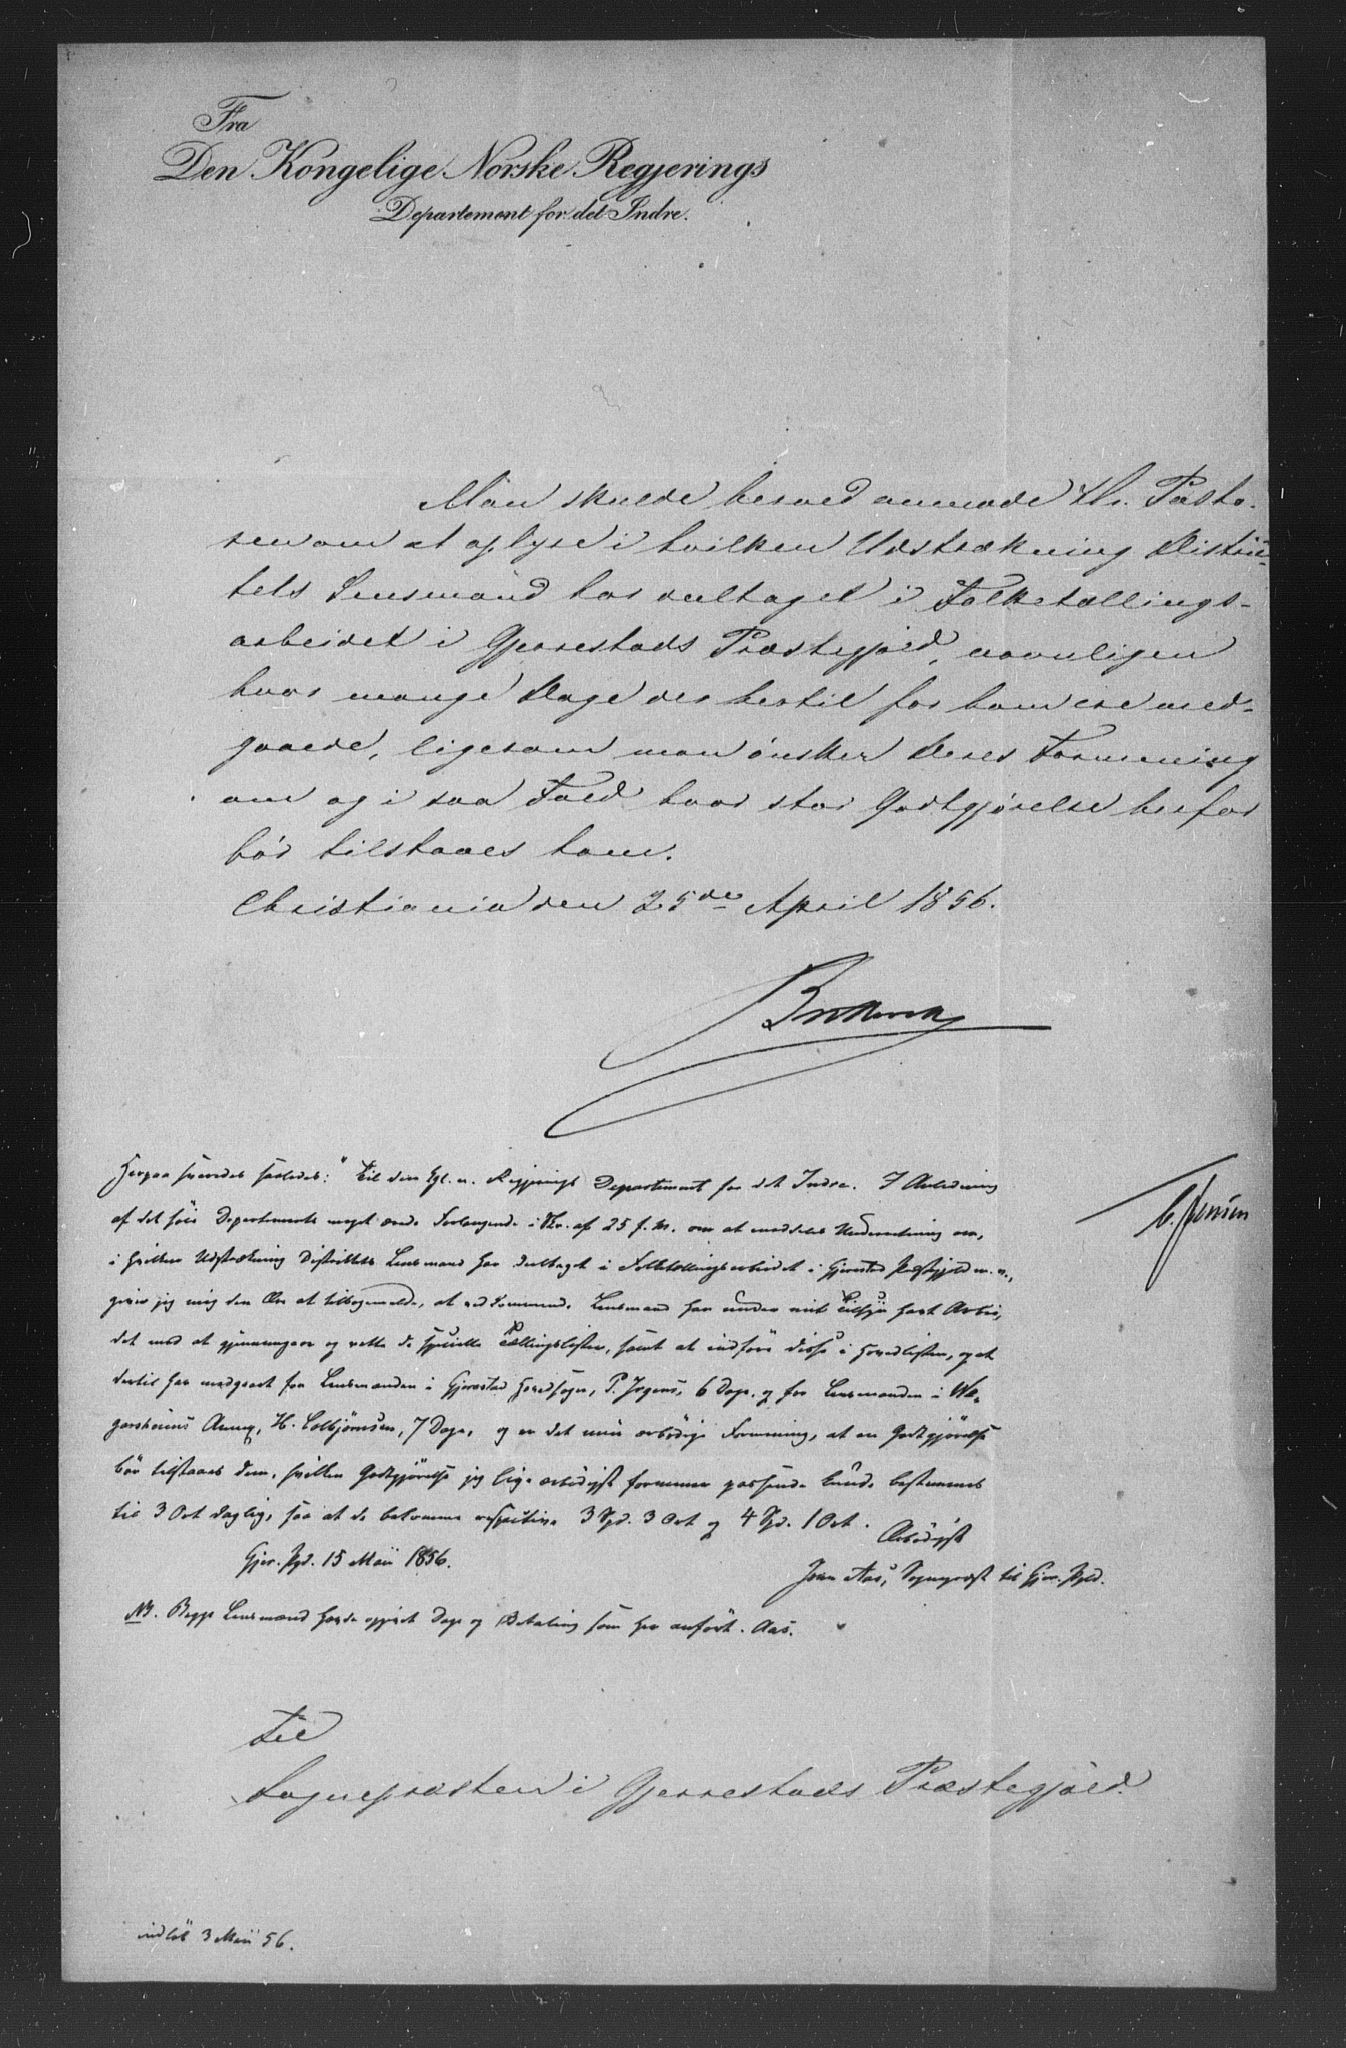 Fra
Den Kongelige Norske Regjerings
Departement for det Indre.
Man skulde herved anmode Hr. Pasto-
ren om at oplyse i hvilken Udstrækning Distrik-
tets Lensmand har deltaget i Folketællings-
arbeidet i Gjerrestads Præstegjæld, navnligen
hvor mange Dage der hertil for ham ere med-
gaaede, ligesom man ønsker Deres Formening
om og i saa Fald hvor stor Godtgjørelse herfor
bør tilstaaes ham.
Christiania den 25de April 1856.
C. Jensen
Herpaa svaredes saaledes: "Til den kgl. n. Regjerings Departement for det Indre. I Anledning
af det høie Departements meget ærede Forlangende i Skr. af 25 f. M. om at meddeles Underretning om,
i hvilken Udstrækning Distriktets Lensmand har deltaget i Folketællingsarbeidet i Gjerestad Præstegjeld m. v.,
giver jeg mig den Ære at tilbagemelde, at vedkommende Lensmand har under mit Tilsyn havt Arbei,
det med at gjennemgaae og rette de specielle Tællingslister, samt at indføre disse i Hovedlisten, og at
dertil har medgaaet for Lensmanden i Gjerestad Hovedsogn, P. Irgens, 6 Dage, og for Lensmanden i We,
gaarsheiens Annex, H. Colbjørnsen, 7 Dage, og er det min ærbødige Formening, at en Godtgjørelse
bør tilstaaes dem, hvilken Godtgjørelse jeg lige ærbødigst formener passende burde bestemmes
til 3 Ort daglig, saa at de bekomme respective 3 Spd. 3 Ort og 4 Spd. 1 Ort.
Ærbødigst
Gjer. Pgd. 15 Mai 1856.
Iver Aas, Sognepræst til Gjer. Pgld.
NB. Begge Lensmænd havde opgivet Dage og Betaling som her anført. Aas.
Til
Sognepræsten i Gjerrestads Præstegjæld.
indløb 3 Mai 56.